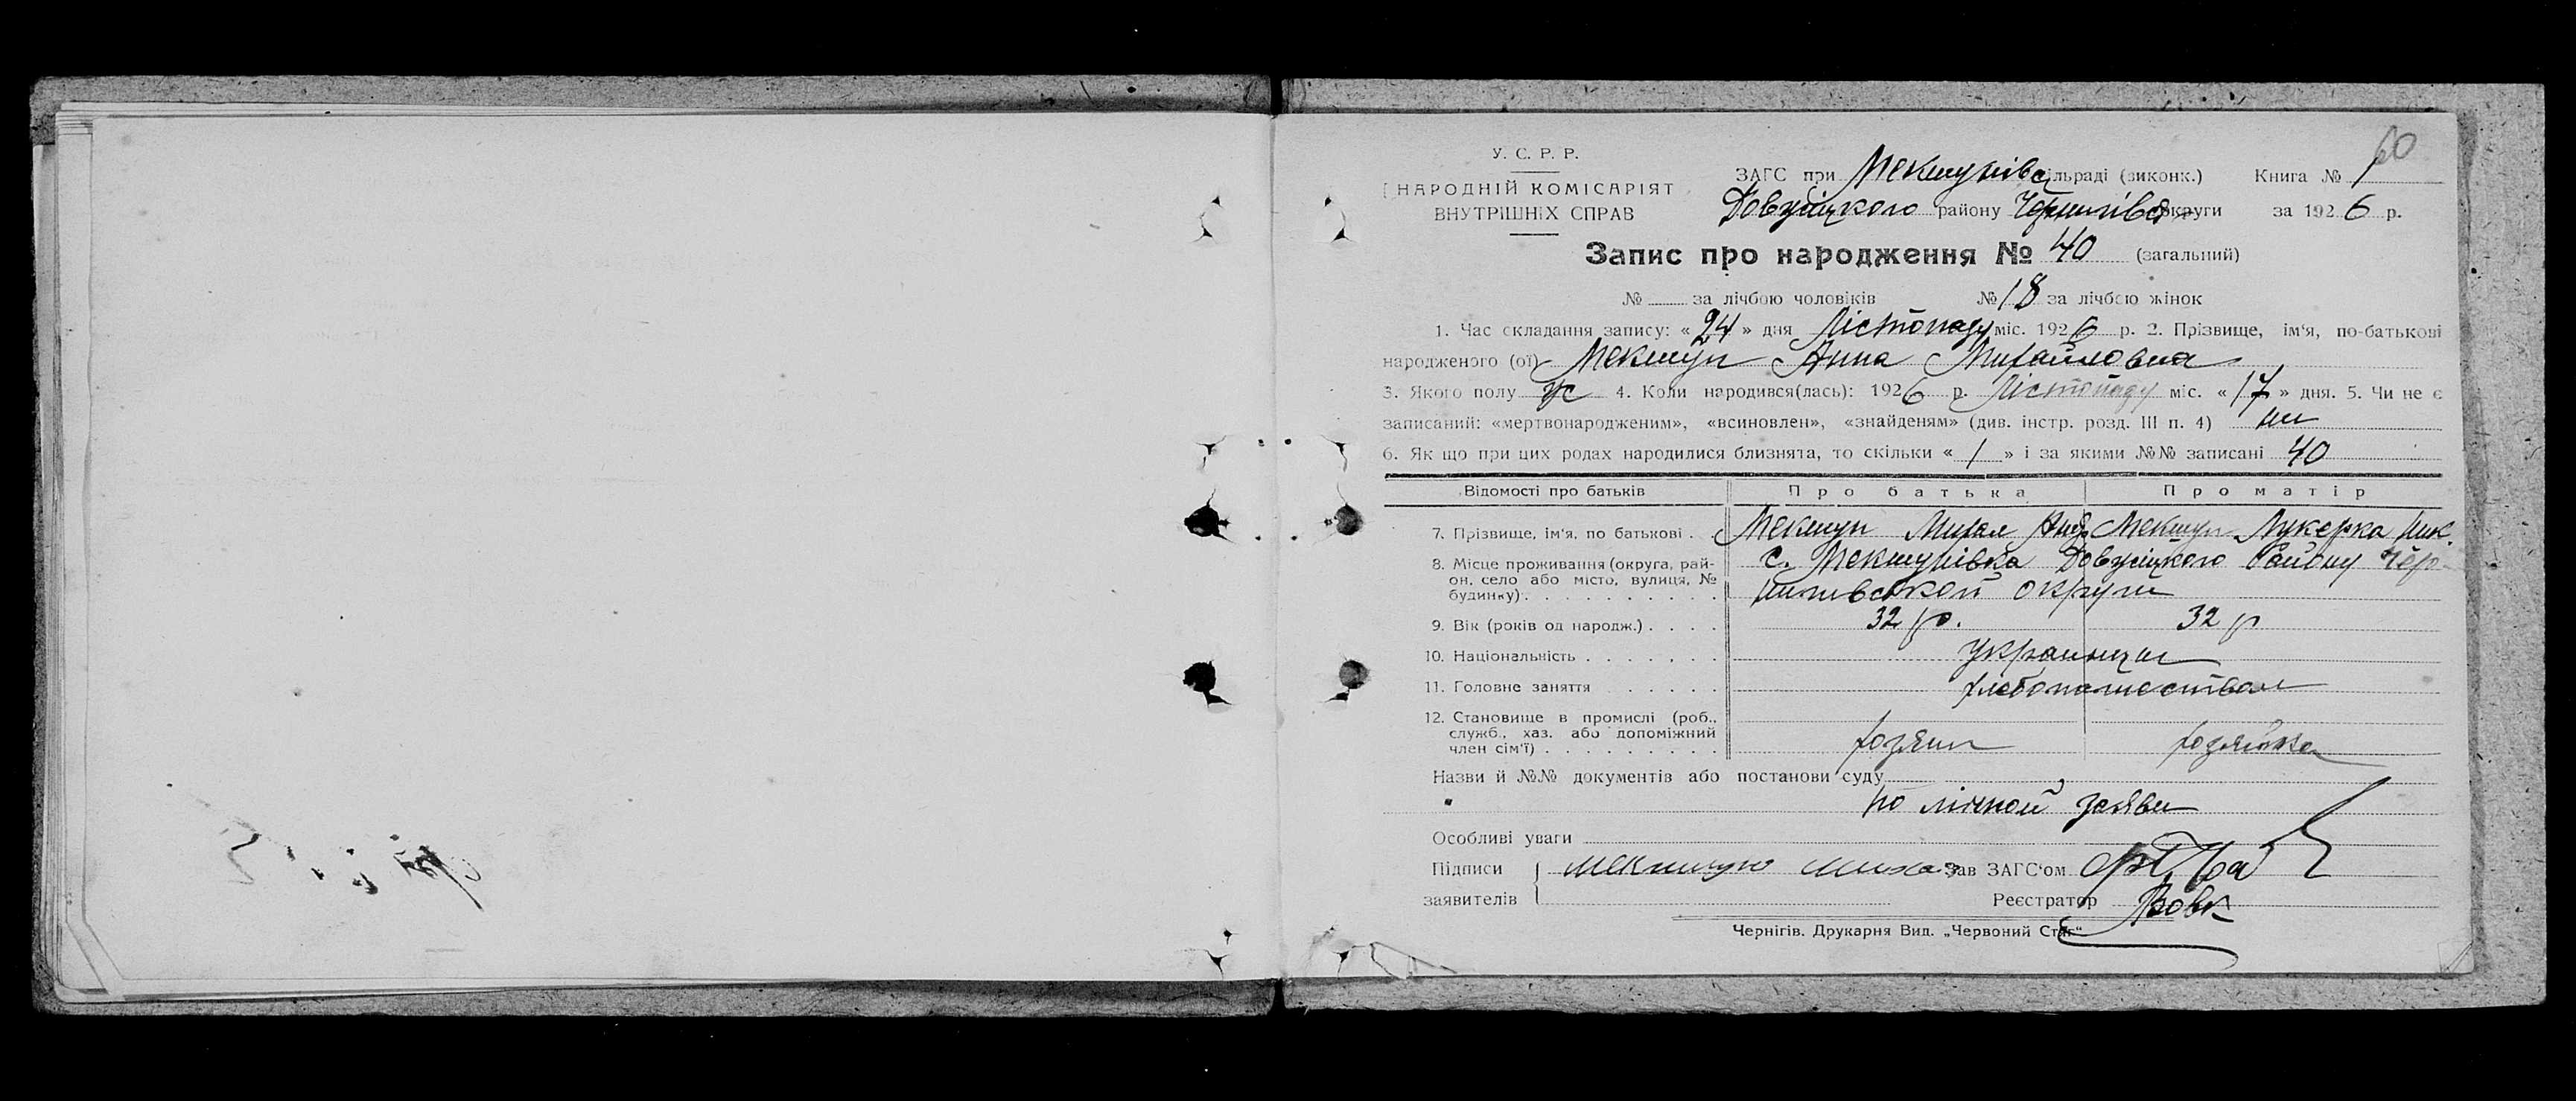 60
У. С. Р. Р.
НАРОДНІЙ КОМІСАРІЯТ
ВНУТРІШНІХ СПРАВ
ЗАГС при Мекшунівс сільраді (виконк.) Книга № 1
району Чернигівс округи за 1926 р.
Запис про народження № 40 (загальний)
№ за лічбою чоловіків № 18 за лічбою жінок
1. Час складання запису: «24» дня Лістопаду міс. 1926 р. 2. Прізвище, ім'я, по-батькові
народженого (ої) Мекшун Анна Михайловна
3. Якого полу ж 4. Коли народився(лась): 1926 р. Лістопаду міс. «17» дня. 5. Чи не є
записаний: «мертвонародженим», «всиновлен», «знайденям» (див. інстр. розд. III п. 4) ни
6. Як що при цих родах народилися близнята, то скільки «1» і за якими №№ записані 40
Відомості про батьків Про батька Про матір
7. Прізвище, ім'я, по батькові . . Мекшун Михал Анд. Мекшун Лукерка Ник.
8. Місце проживання (округа, рай- с. Мекшунівка Району Чер-
он, село або місто, вулиця, №
будинку) . . . . . . . . . нигивской округи
9. Вік (років од народж.) . . . . 32 р. 32 р
10. Національність . . . . . . . Украинци
11. Головне заняття . . . . . . хлебопашеством
12. Становище в промислі (роб.,
служб., хаз. або допоміжний
член сім'ї) . . . . . . . . . хозяин хозяйка
Назви й №№ документів або постанови суду
по личной заяви
Особливі уваги
Підписи мекшун миха Зав ЗАГС'ом
заявителів Реєстратор Вовк
Чернігів. Друкарня Вид. „Червоний Стяг"